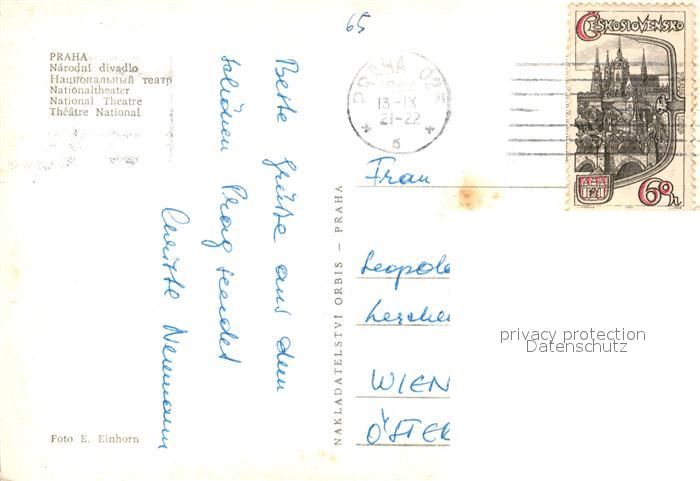 65
PRAHA
Národní divadlo
Национальный театр
Nationaltheater
National Theatre
Théâtre National
Beste Grüße aus dem
schönen Prag sendet
Neumann
Foto E. Einhorn
NAKLADATELSTVÍ ORBIS – PRAHA
PRAHA 025
13-IX
21-22
5
ČESKOSLOVENSKO
60h
Frau
Leopol
WIEN
ÖSTER
privacy protection
Datenschutz